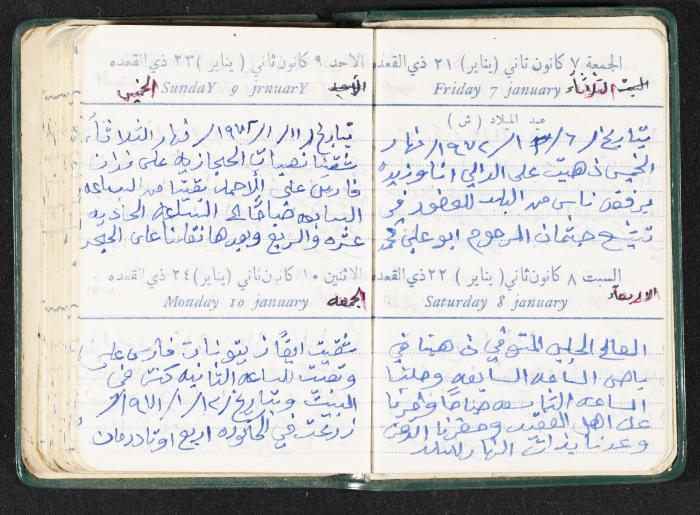 الجمعة ٧ كانون ثاني (يناير) ٢١ ذي القعده
Friday 7 january
الثلاثاء السبت
عيد الميلاد (ش)
بتاريخ ٦/١/١٩٧٢/ نهار
الخميس ذهبت على الدالي انا وزيد
برفقة ناس من البلد للحضور في
تشيع جثمان المرحوم ابو علي محمد
السبت ٨ كانون ثاني (يناير) ٢٢ ذي القعده
Saturday 8 january
الاربعاء
الصالح الحلبي المتوفي ذهبنا في
باص الساعه السابعه وصلنا
الساعه التاسعه صباحا واجرنا
على اهل الفقيد وحضرنا الدفن
وعدنا بذات النهار للبلد
الاحد ٩ كانون ثاني (يناير) ٢٣ ذي القعده
SundaY 9 jrnuarY
الخميس الأحد
بتاريخ ١١/١/١٩٧٢/ نهار الثلاثاء
شقينا نهيات الحجازيه على فدان
فارس على الأحمد بقينا من الساعه
السابعه صباحا الساعه الحاديه
عشره والربع وبعدها نقلنا على الحجر
الاثنين ١٠ كانون ثاني (يناير) ٢٤ ذي القعده
Monday 10 january
الجمعه
شقيت ايضا زيتونات فارس على
وبقيت للساعه الثانيه كنت في
البيت وبتاريخ ١٣/١/١٩٧١/
زرعت في الحاكوره اربع اوتاد رمان